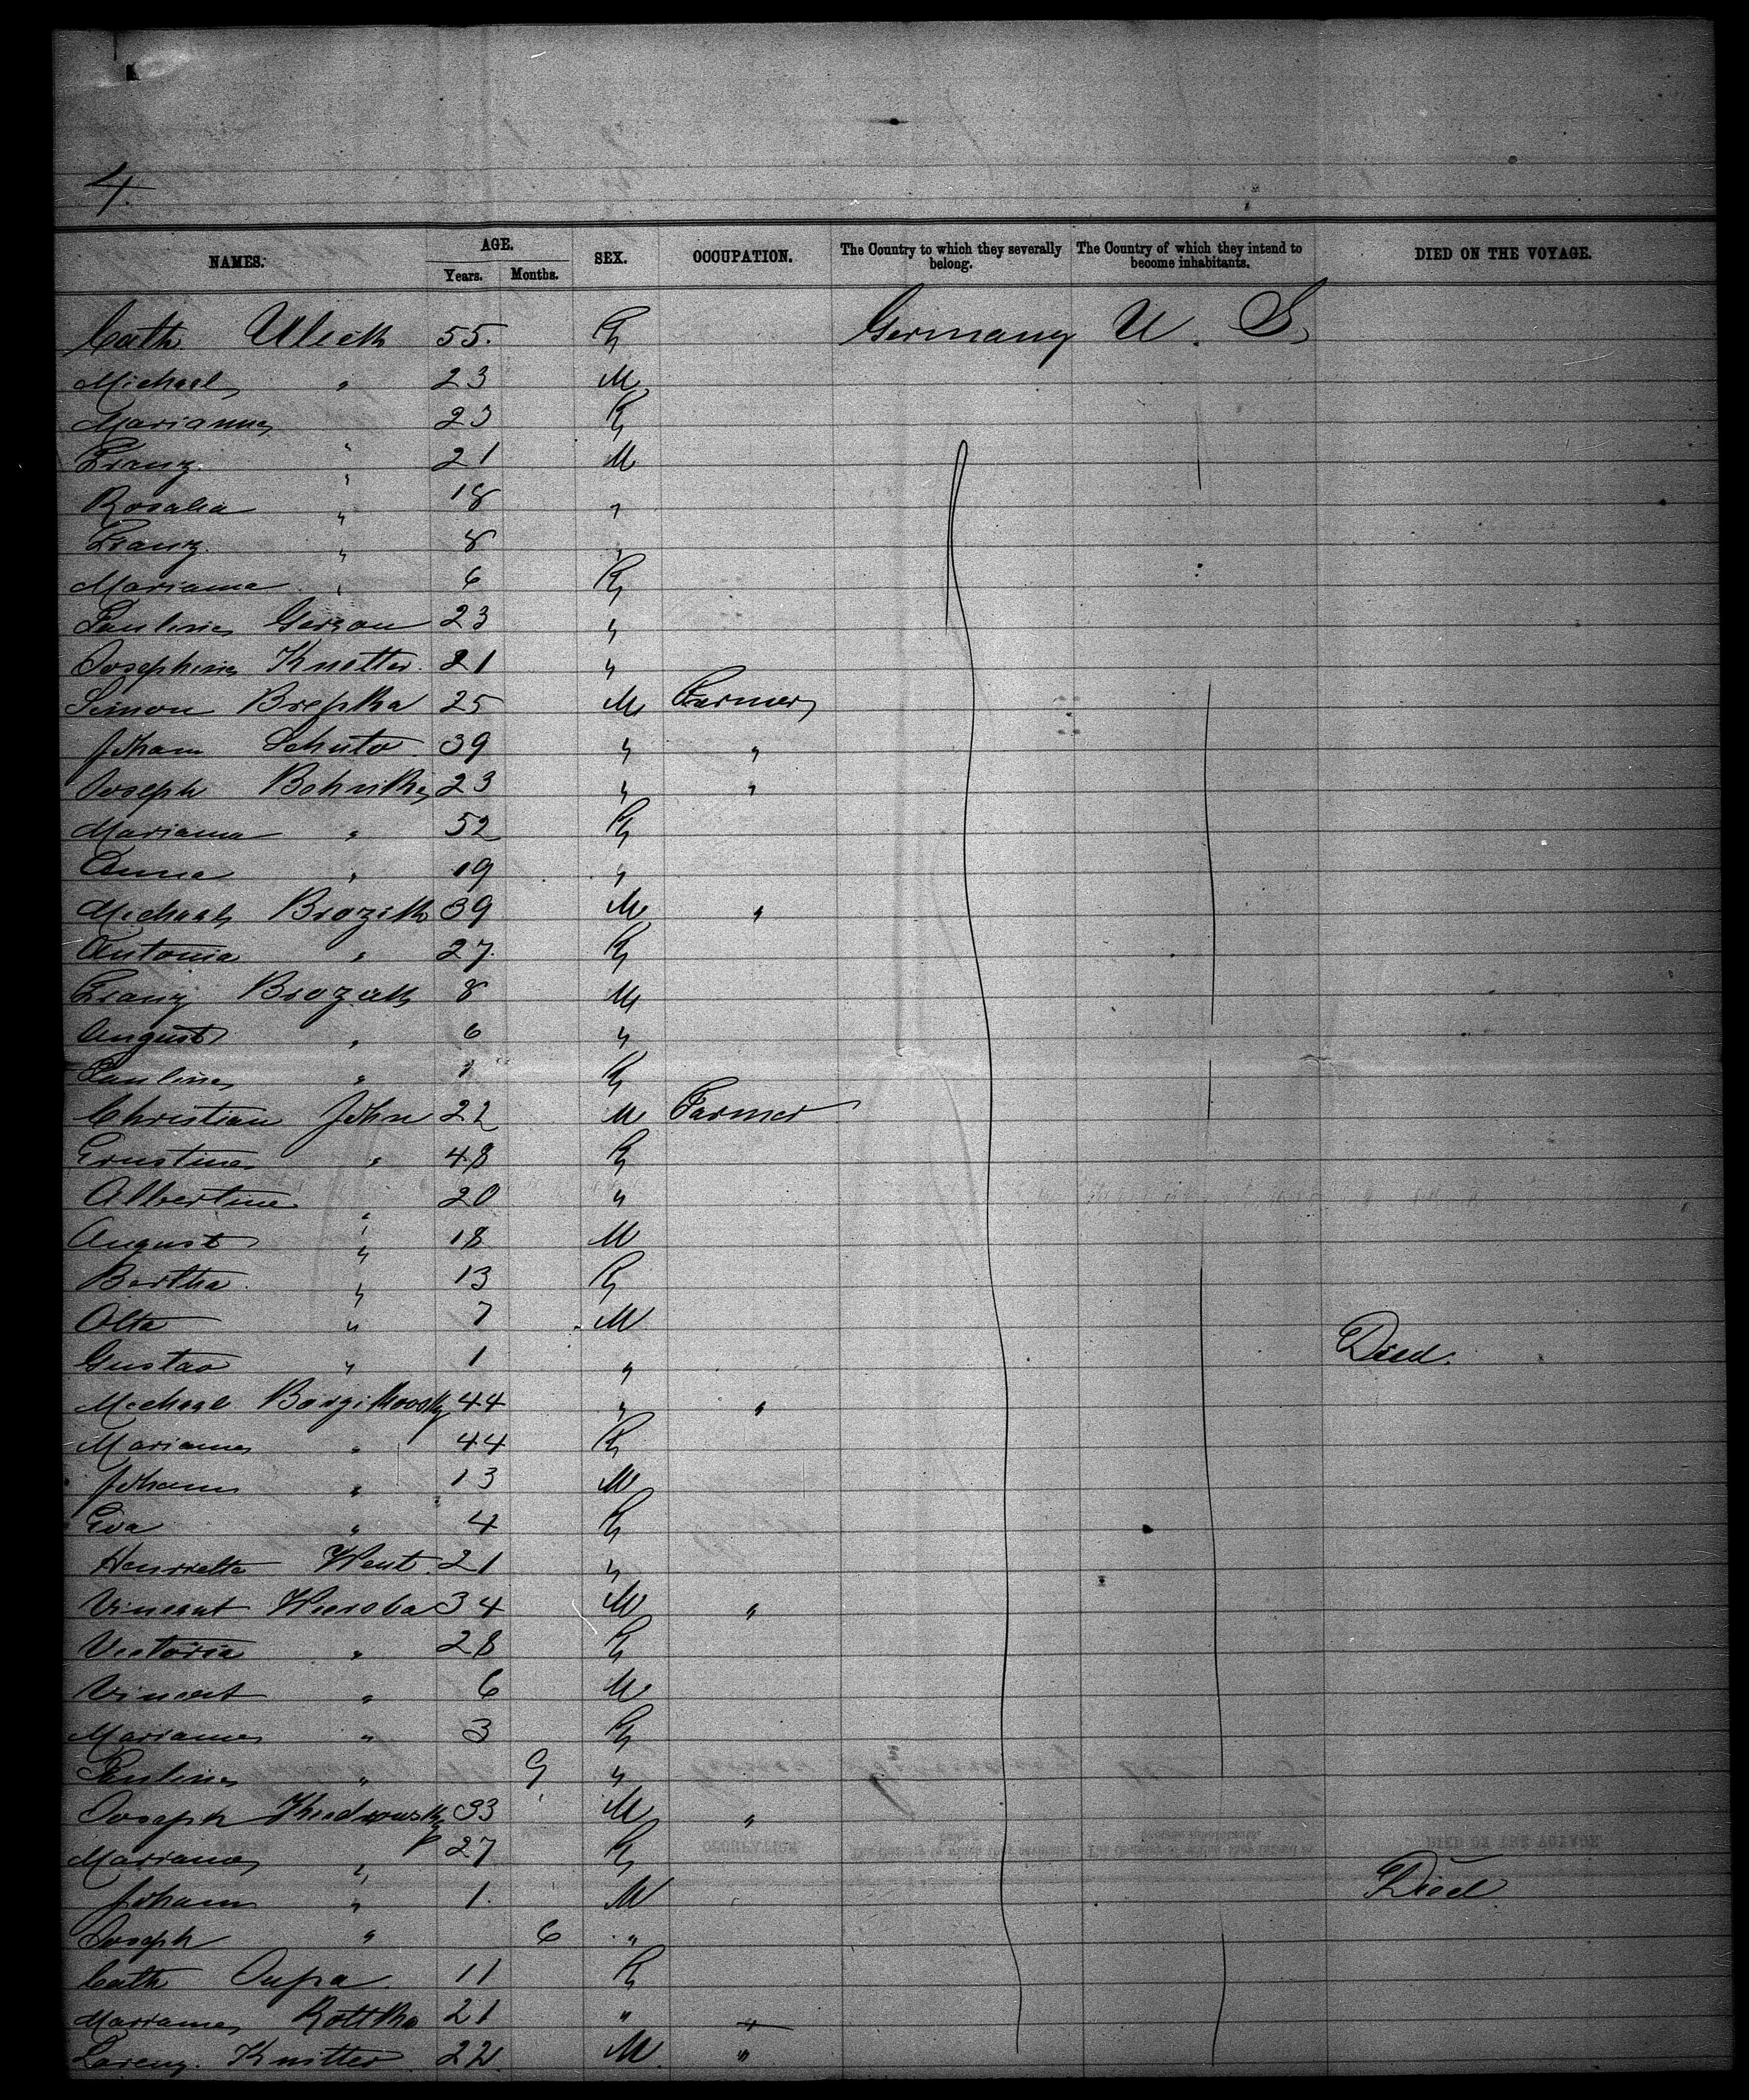 4.
NAMES. AGE. SEX. OCCUPATION. The Country to which they severally belong. The Country of which they intend to become inhabitants. DIED ON THE VOYAGE.
Years. Months.
Cath. Ulick 55. F Germany U. S.
Michael " 23 M
Marianne " 23 F
Franz " 21 M
Rosalia " 18 "
Franz " 8 "
Marianna " 6 F
Pauline Gerzon 23 "
Josephine Knetter 21 "
Simon Brepka 25 M Farmer
Johann Schuto 39 " "
Joseph Bohnke 23 " "
Marianna " 52 F
Anna " 19 "
Michael Brozik 39 M "
Antonia " 27. F
Franz Brozak 8 M
August " 6 "
Pauline " 1 F
Christian John 22 M Farmer
Ernstine " 48 F
Albertine " 20 "
August " 18 M
Bertha " 13 F
Otto " 7 M
Gustav " 1 " Died.
Michael 44 " "
Marianne " 44 F
Johann " 13 M
Eva " 4 F
Henriette Went 21 "
Vincent Wieroba 34 M "
Victoria " 28 F
Vincent " 6 M
Marianne " 3 F
Pauline " 9 "
Joseph 33 M "
Marianne " 27 F
Johann " 1. M Died
Joseph " 6 "
Cath Oupa 11 F
Marianne Rottka 21 "
Lorenz. Knitter 22 M "